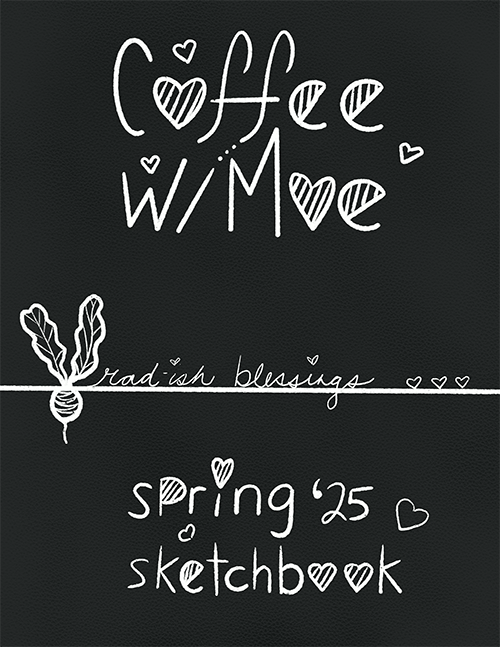 Coffee
w/Moe
rad-ish blessings
spring '25
sketchbook